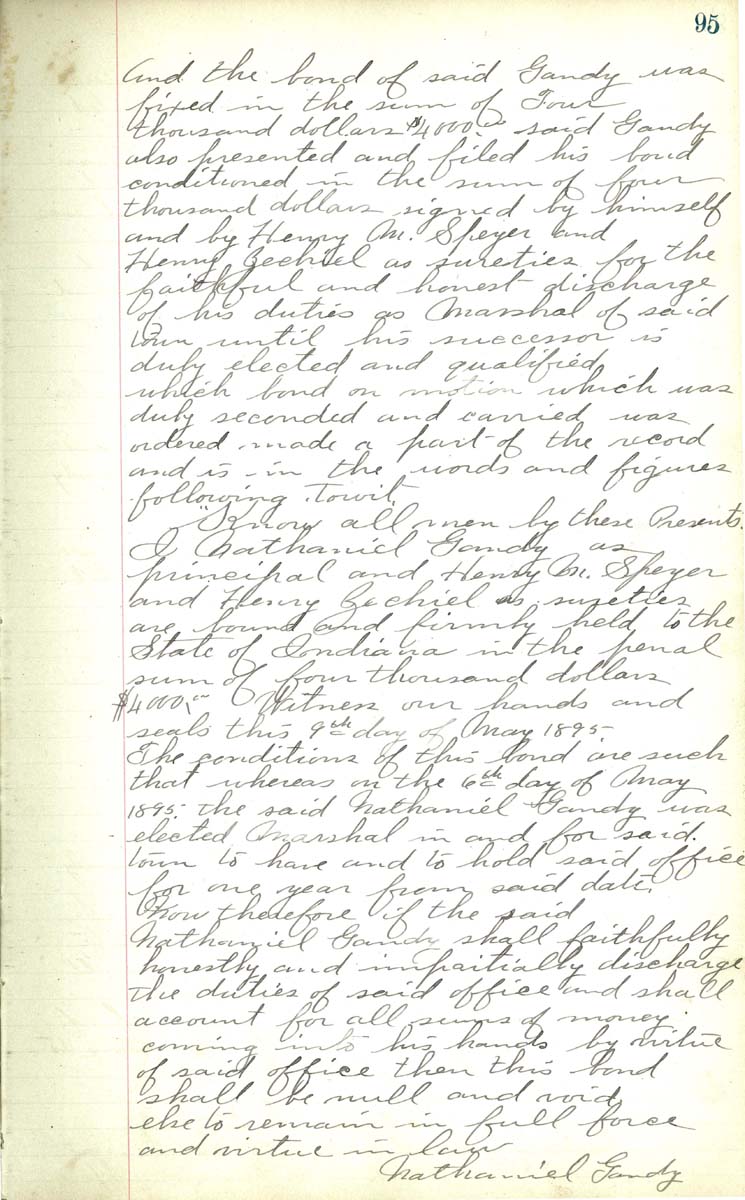 95
And the bond of said Gandy was
fixed in the sum of Four
thousand dollars $4000.00 said Gandy
also presented and filed his bond
conditioned in the sum of four
thousand dollars signed by himself
and by Henry M. Speyer and
Henry Ezechiel as sureties for the
faithful and honest discharge
of his duties as Marshal of said
town until his successor is
duly elected and qualified
which bond on motion which was
duly seconded and carried was
ordered made a part of the record
and is in the words and figures
following Towit.
"Know all men by these Presents.
I Nathaniel Gandy as
principal and Henry M. Speyer
and Henry Ezechiel as sureties
are bound and firmly held to the
State of Indiana in the penal
sum of four thousand dollars
$4000.00 Witness our hands and
seals this 9th day of May 1895.
The conditions of this bond are such
that whereas on the 6th day of May
1895 the said Nathaniel Gandy was
elected Marshal in and for said.
town to have and to hold said office
for one year from said date.
Now therefore if the said
Nathaniel Gandy shall faithfully
honestly and impartially discharge
the duties of said office and shall
account for all sums of money
coming into his hands by virtue
of said office then this bond
shall be null and void
else to remain in full force
and virtue in law
Nathaniel Gandy